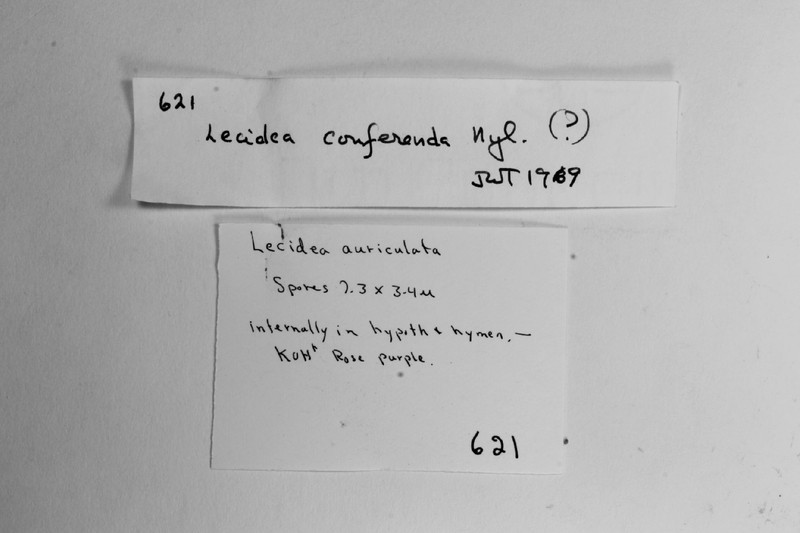 621
Lecidea conferenda Nyl. (?)
JWT 1969
Lecidea auriculata
Spores 7.3 x 3.4µ
internally in hypoth & hymen. —
KOH+ Rose purple.
621